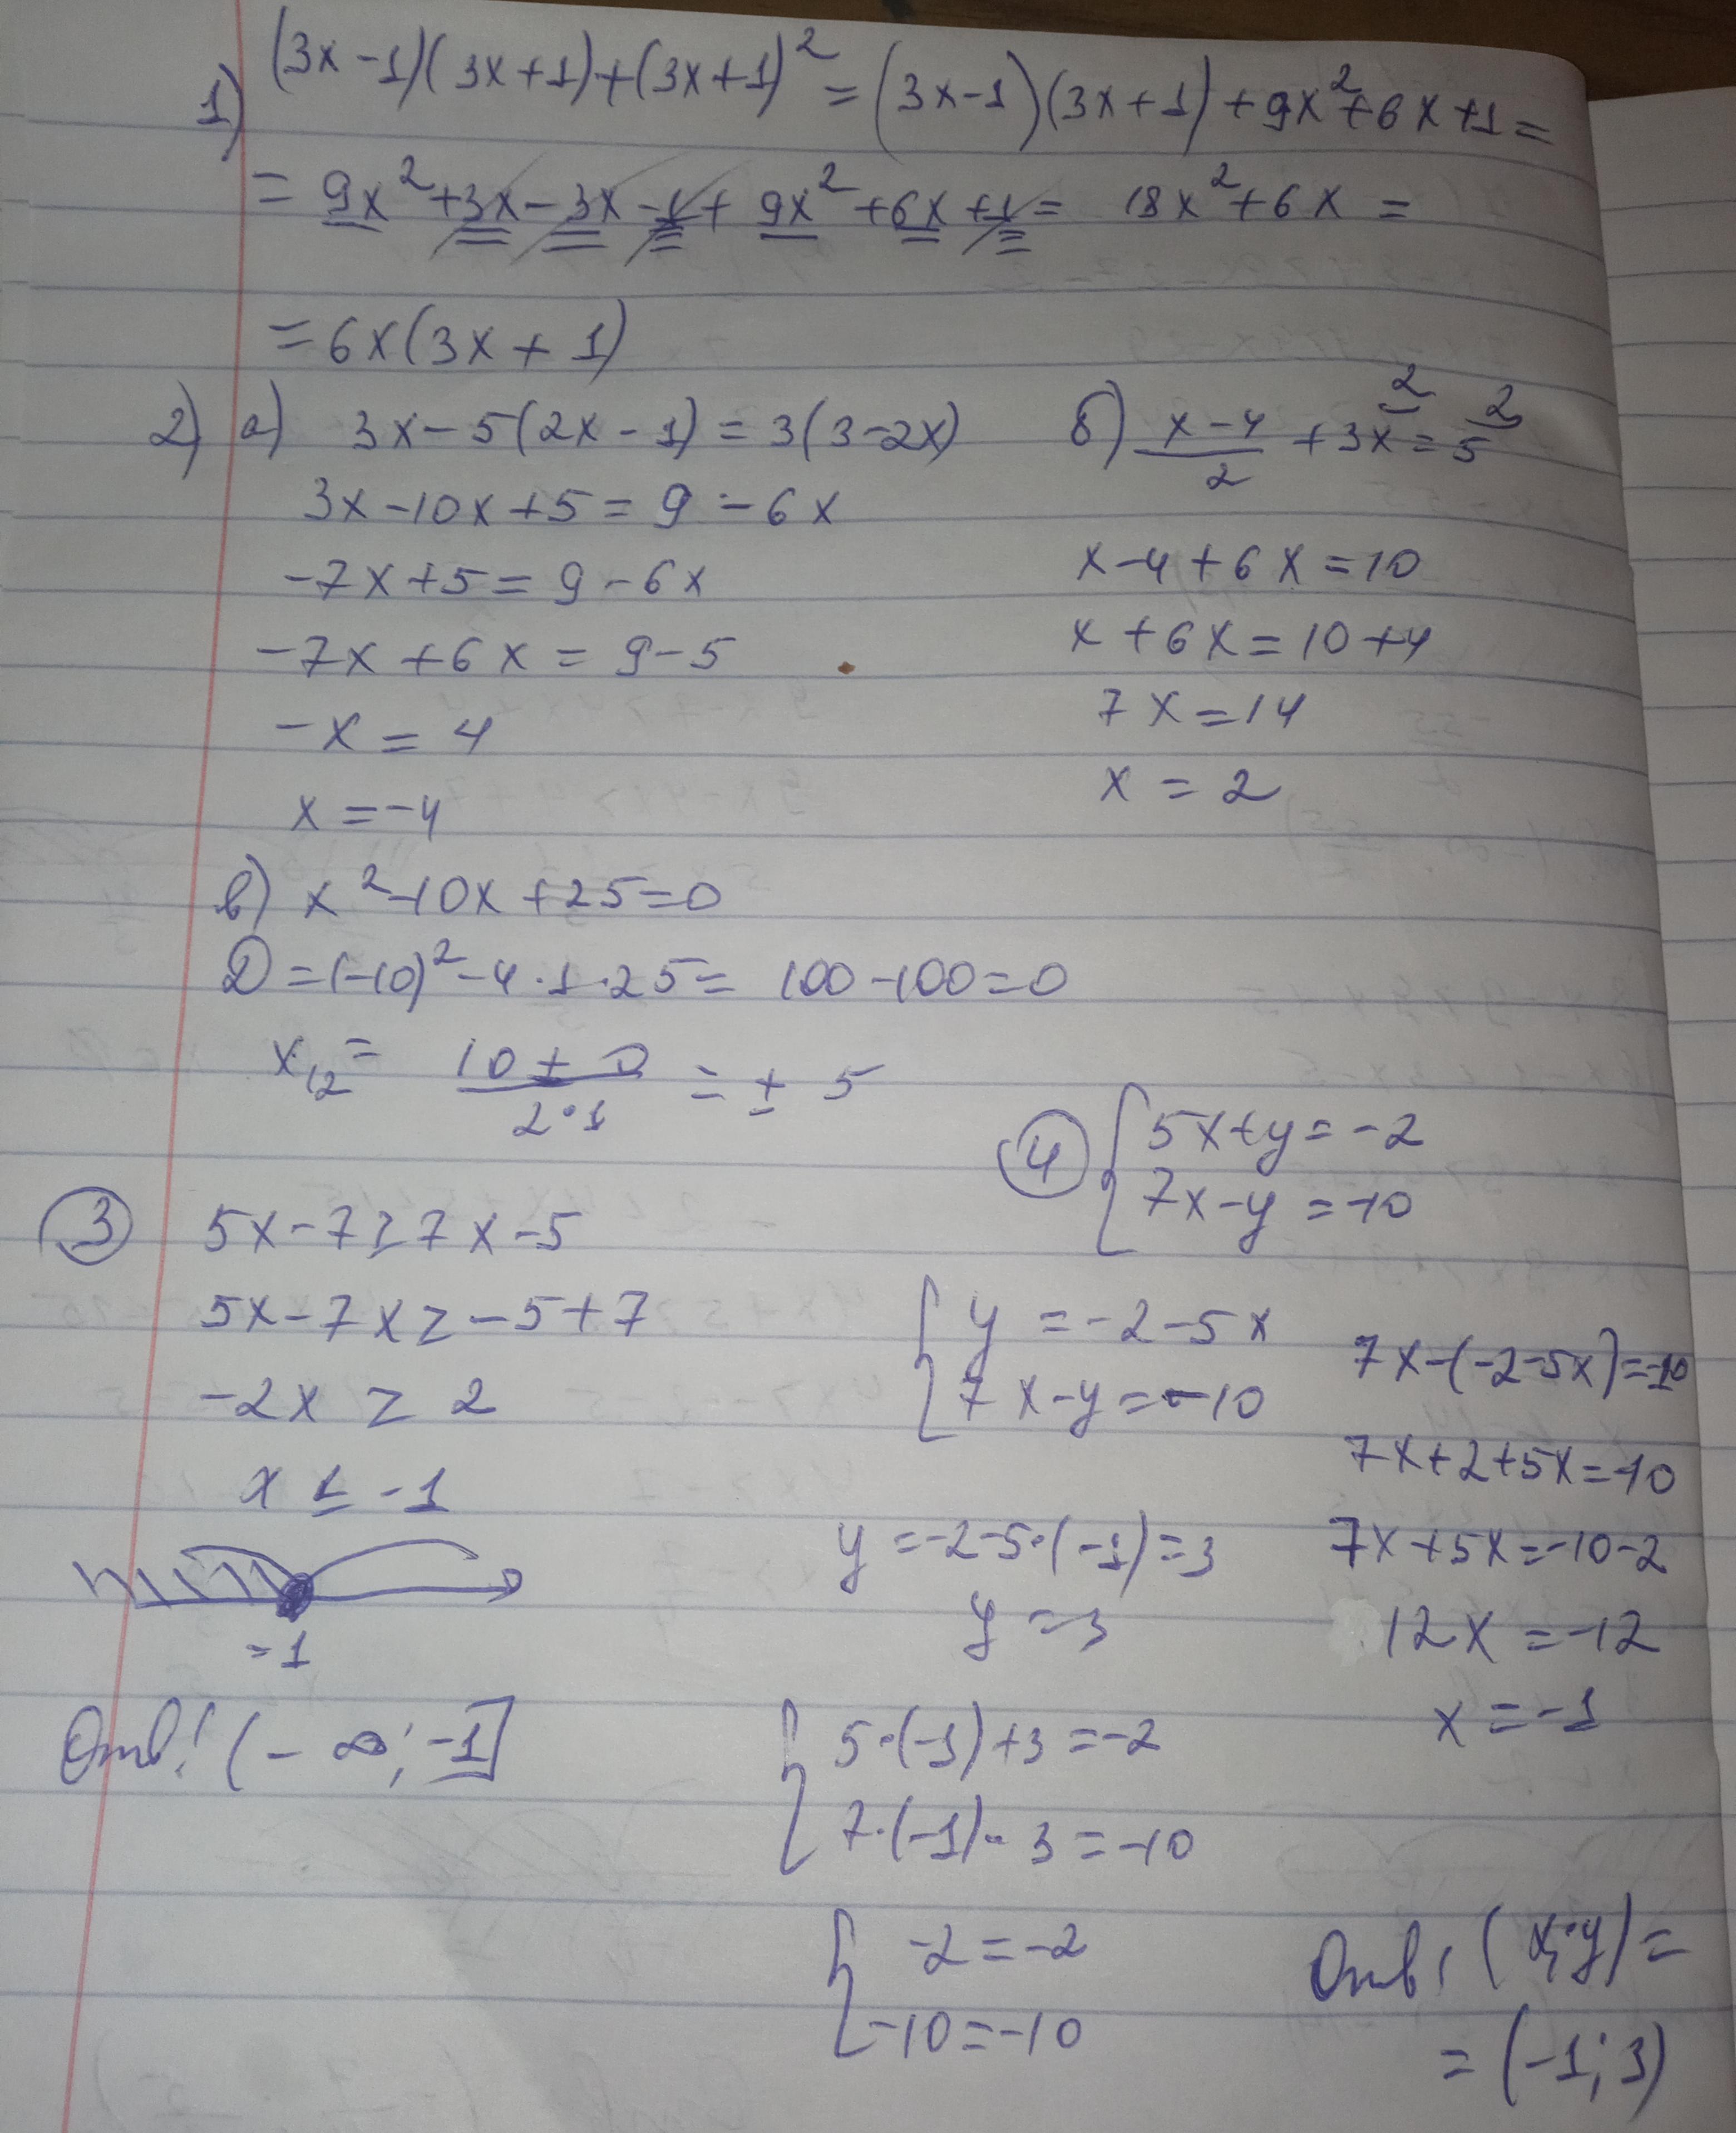 1) (3x-1)(3x+1)+(3x+1)² = (3x-1)(3x+1)+9x²+6x+1=
= 9x²+3x-3x-1+9x²+6x+1= 18x²+6x =
=6x(3x+1)
2) а) 3x-5(2x-1)=3(3-2x)
3x-10x+5=9-6x
-7x+5=9-6x
-7x+6x=9-5
-x=4
x=-4
б) (x-4)/2 + 3x² = 5²
x-4+6x=10
x+6x=10+4
7x=14
x=2
в) x²-10x+25=0
D=(-10)²-4·1·25= 100-100=0
x₁₂= (10±0)/(2·1) = ±5
3 5x-7≥7x-5
5x-7x≥-5+7
-2x≥2
x≤-1
-1
Отв: (-∞;-1]
4 { 5x+y=-2
7x-y=-10
{ y=-2-5x
7x-y=-10
7x-(-2-5x)=-10
7x+2+5x=-10
7x+5x=-10-2
12x=-12
x=-1
y=-2-5·(-1)=3
y=3
{ 5·(-1)+3=-2
7·(-1)-3=-10
{ -2=-2
-10=-10
Отв: (x;y)=
=(-1;3)